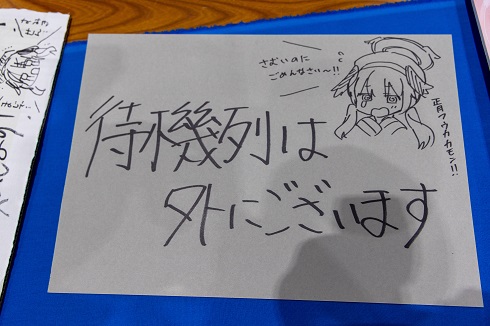 さむいのに
ごめんなさい〜!!
待機列は
外にございます
正月フウカカモン!!